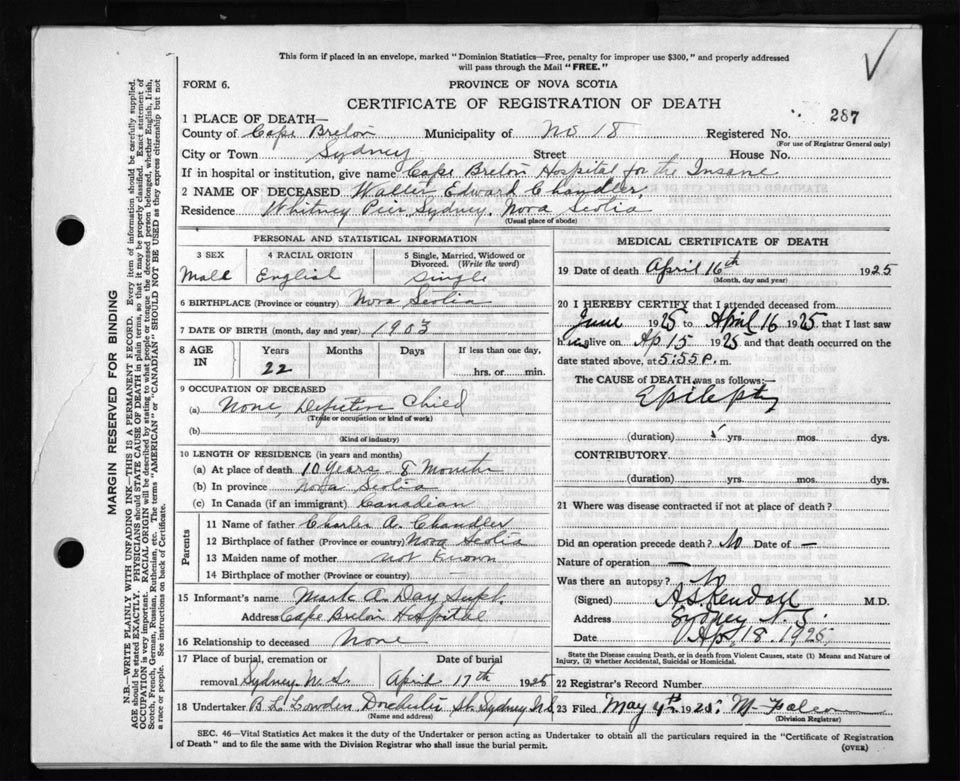 This form if placed in an envelope, marked "Dominion Statistics—Free, penalty for improper use $300," and properly addressed
will pass through the Mail "FREE."
FORM 6.
PROVINCE OF NOVA SCOTIA
CERTIFICATE OF REGISTRATION OF DEATH
287
1 PLACE OF DEATH—
County of Cape Breton Municipality of No 18 Registered No.
(For use of Registrar General only)
City or Town Sydney Street House No.
If in hospital or institution, give name Cape Breton Hospital for the Insane
2 NAME OF DECEASED Walter Edward Chandler
Residence Whitney Pier Sydney, Nova Scotia
(Usual place of abode)
PERSONAL AND STATISTICAL INFORMATION
3 SEX 4 RACIAL ORIGIN 5 Single, Married, Widowed or
Divorced. (Write the word)
Male English Single
6 BIRTHPLACE (Province or country) Nova Scotia
7 DATE OF BIRTH (month, day and year) 1903
8 AGE IN Years Months Days If less than one day,
22 hrs. or min.
9 OCCUPATION OF DECEASED
(a) None, Defective Child
(Trade or occupation or kind of work)
(b)
(Kind of industry)
10 LENGTH OF RESIDENCE (in years and months)
(a) At place of death 10 Years - 8 Months
(b) In province Nova Scotia
(c) In Canada (if an immigrant) Canadian
Parents
11 Name of father Charles A. Chandler
12 Birthplace of father (Province or country) Nova Scotia
13 Maiden name of mother not known
14 Birthplace of mother (Province or country) —
15 Informant's name Mark A. Day Supt.
Address Cape Breton Hospital
16 Relationship to deceased None
17 Place of burial, cremation or Date of burial
removal Sydney N.S. April 17th 1925
18 Undertaker B L Lowden Dorchester St. Sydney N.S.
(Name and address)
MEDICAL CERTIFICATE OF DEATH
19 Date of death April 16th 1925
(Month, day and year)
20 I HEREBY CERTIFY that I attended deceased from
June 1925 to April 16 1925 that I last saw
h alive on Ap 15 1925 and that death occurred on the
date stated above, at 5:55 P. m.
The CAUSE OF DEATH was as follows:—
Epilepsy
(duration) yrs. mos. dys.
CONTRIBUTORY.
(duration) yrs. mos. dys.
21 Where was disease contracted if not at place of death?
Did an operation precede death? No Date of —
Nature of operation —
Was there an autopsy? No
(Signed) A S Kendall M.D.
Address Sydney N.S.
Date Ap 18 1925
State the Disease causing Death, or in death from Violent Causes, state (1) Means and Nature of
Injury, (2) whether Accidental, Suicidal or Homicidal.
22 Registrar's Record Number
23 Filed May 4th 1925
(Division Registrar)
SEC. 46—Vital Statistics Act makes it the duty of the Undertaker or person acting as Undertaker to obtain all the particulars required in the "Certificate of Registration
of Death" and to file the same with the Division Registrar who shall issue the burial permit.
(OVER)
MARGIN RESERVED FOR BINDING
N.B.—WRITE PLAINLY WITH UNFADING INK—THIS IS A PERMANENT RECORD. Every item of information should be carefully supplied.
AGE should be stated EXACTLY. PHYSICIANS should STATE CAUSE OF DEATH in plain terms, so that it may be properly classified. Exact statement of
OCCUPATION is very important. RACIAL ORIGIN will be described by stating to what people or tongue the deceased person belonged, whether English, Irish,
Scotch, French, German, Russian, Ruthenian, etc. The terms "AMERICAN" or "CANADIAN" SHOULD NOT BE USED as they express citizenship but not
a race or people. See instructions on back of Certificate.